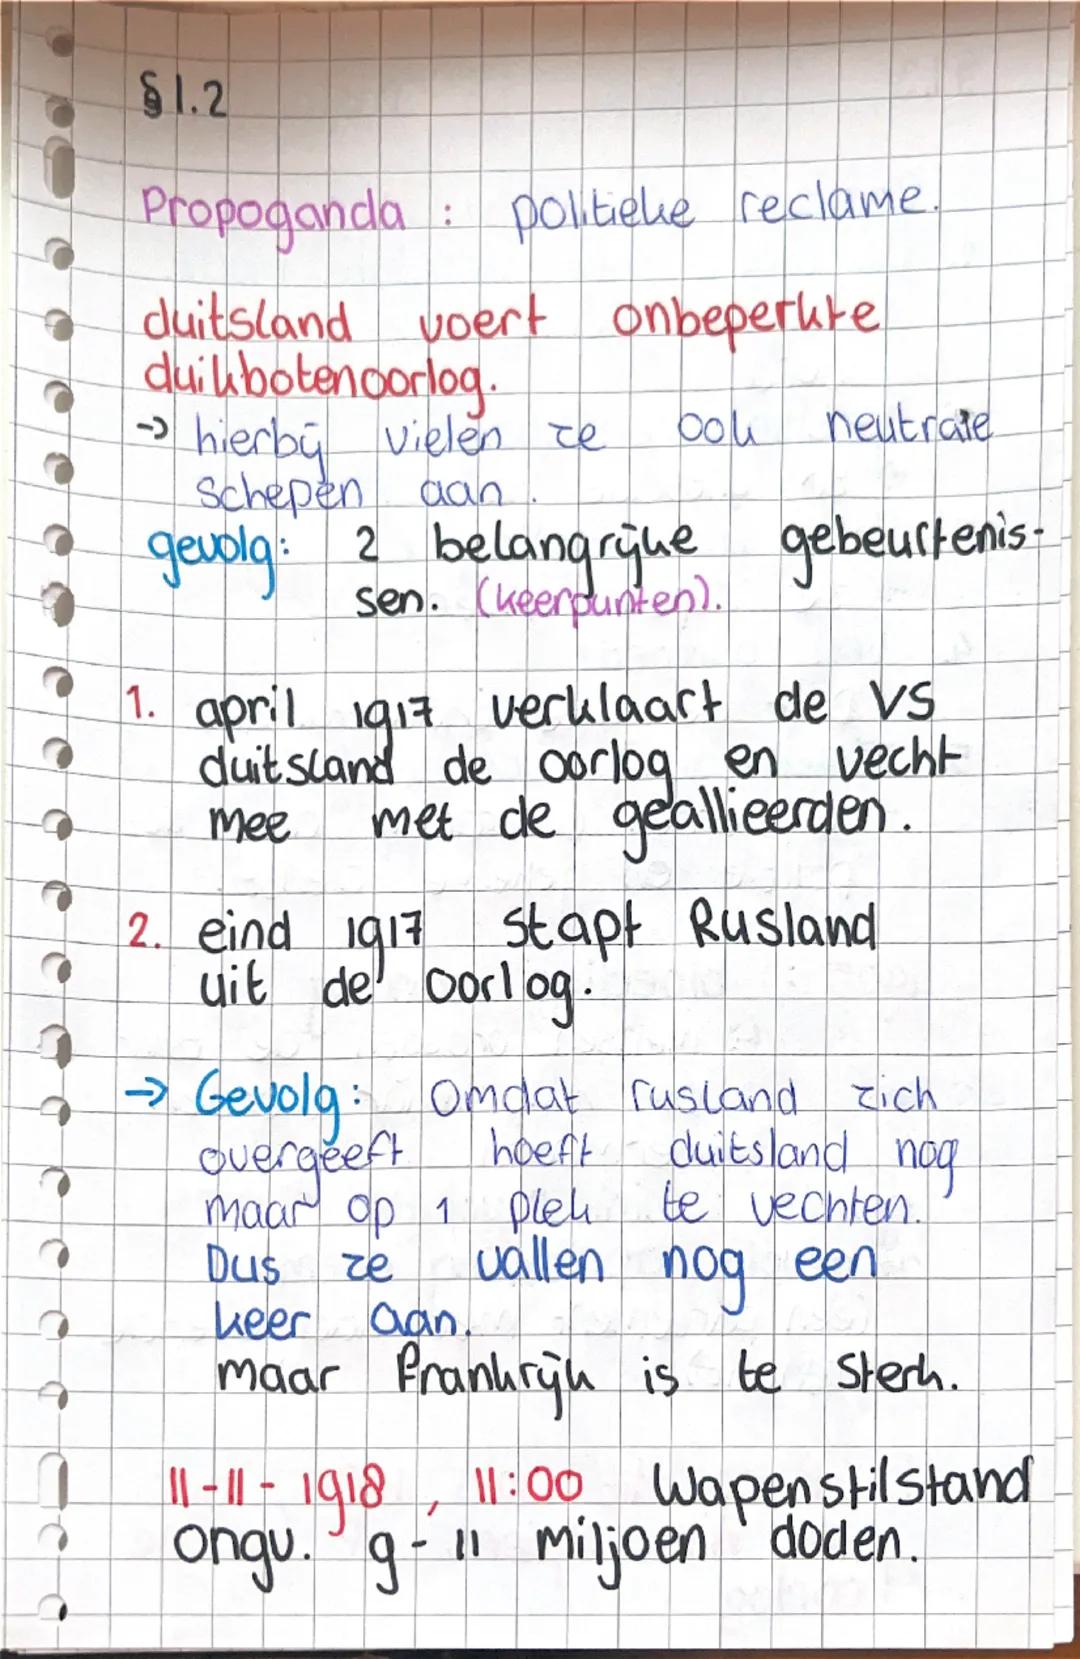 §1.2
Propoganda : politieke reclame.
duitsland voert onbeperkte
duikbotenoorlog.
-> hierbij vielen ze ook neutrale
schepen aan.
gevolg: 2 belangrijke gebeurtenis-
sen. (keerpunten).
1. april 1917 verklaart de VS
duitsland de oorlog en vecht
mee met de geallieerden.
2. eind 1917 stapt Rusland
uit de oorlog.
-> Gevolg: Omdat rusland zich
overgeeft hoeft duitsland nog
maar op 1 plek te vechten.
Dus ze vallen nog een
keer aan.
maar Frankrijk is te sterk.
11-11-1918, 11:00 Wapenstilstand
ongv. 9-11 miljoen doden.